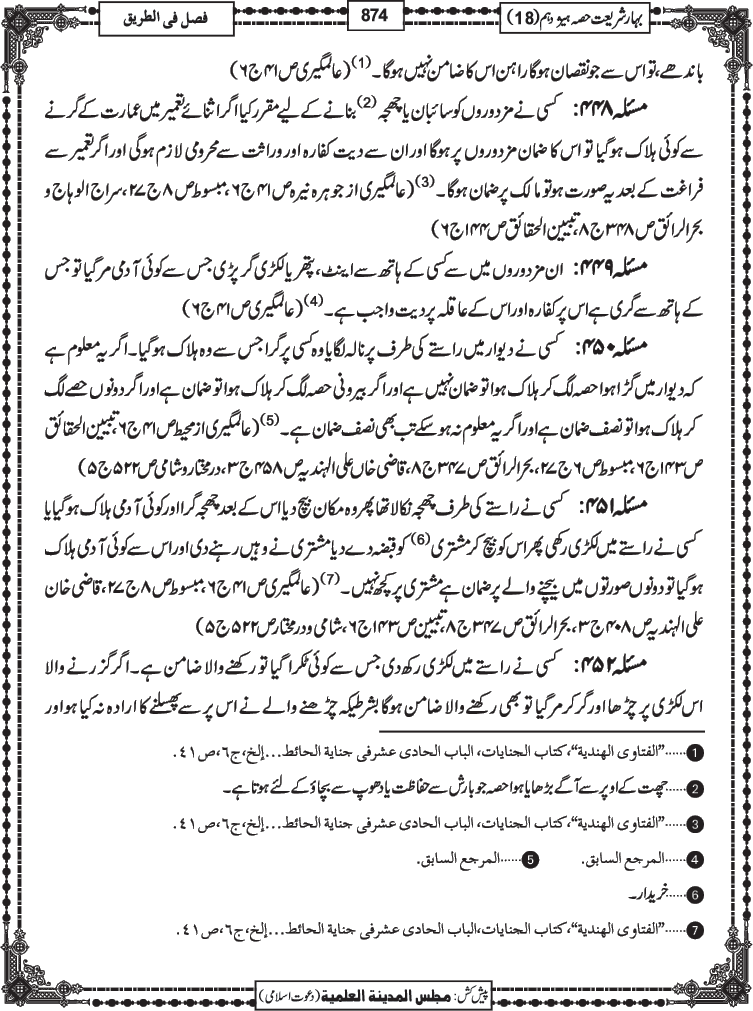 بہار شریعت حصہ ہیژدہم (18)
874
فصل فی الطریق
باندھے، تو اس سے جو نقصان ہوگا راہن اس کا ضامن نہیں ہوگا۔(1) (عالمگیری ص ۴۱ ج ۶)
مسئلہ ۴۴۸: کسی نے مزدوروں کو سائبان یا چھجہ (2) بنانے کے لیے مقرر کیا اگر اثنائے تعمیر میں عمارت کے گرنے
سے کوئی ہلاک ہوگیا تو اس کا ضمان مزدوروں پر ہوگا اور ان سے دیت کفارہ اور وراثت سے محرومی لازم ہوگی اور اگر تعمیر سے
فراغت کے بعد یہ صورت ہو تو مالک پر ضمان ہوگا۔(3) (عالمگیری از جوہرہ نیرہ ص ۴۱ ج ۶، مبسوط ص ۸ ج ۲۷، سراج الوہاج و
بحرالرائق ص ۳۴۸ ج ۸، تبیین الحقائق ص ۱۴۴ ج ۶)
مسئلہ ۴۴۹: ان مزدوروں میں سے کسی کے ہاتھ سے اینٹ، پتھر یا لکڑی گر پڑی جس سے کوئی آدمی مر گیا تو جس
کے ہاتھ سے گری ہے اس پر کفارہ اور اس کے عاقلہ پر دیت واجب ہے۔(4) (عالمگیری ص ۴۱ ج ۶)
مسئلہ ۴۵۰: کسی نے دیوار میں راستے کی طرف پرنالہ لگایا وہ کسی پر گرا جس سے وہ ہلاک ہوگیا۔ اگر یہ معلوم ہے
کہ دیوار میں گڑا ہوا حصہ لگ کر ہلاک ہوا تو ضمان نہیں ہے اور اگر بیرونی حصہ لگ کر ہلاک ہوا تو ضمان ہے اور اگر دونوں حصے لگ
کر ہلاک ہوا تو نصف ضمان ہے اور اگر یہ معلوم نہ ہو سکے تب بھی نصف ضمان ہے۔(5) (عالمگیری از محیط ص ۴۱ ج ۶، تبیین الحقائق
ص ۱۴۳ ج ۶، مبسوط ص ۶ ج ۲۷، بحرالرائق ص ۳۴۷ ج ۸، قاضی خاں علی الہندیہ ص ۴۵۸ ج ۳، درمختار و شامی ص ۵۲۲ ج ۵)
مسئلہ ۴۵۱: کسی نے راستے کی طرف چھجہ نکالا تھا پھر وہ مکان بیچ دیا اس کے بعد چھجہ گرا اور کوئی آدمی ہلاک ہوگیا یا
کسی نے راستے میں لکڑی رکھی پھر اس کو بیچ کر مشتری (6) کو قبضہ دے دیا مشتری نے وہیں رہنے دی اور اس سے کوئی آدمی ہلاک
ہوگیا تو دونوں صورتوں میں بیچنے والے پر ضمان ہے مشتری پر کچھ نہیں۔(7) (عالمگیری ص ۴۱ ج ۶، مبسوط ص ۸ ج ۲۷، قاضی خان
علی الہندیہ ص ۴۰۸ ج ۳، بحرالرائق ص ۳۴۷ ج ۸، تبیین ص ۱۴۳ ج ۶، شامی و درمختار ص ۵۲۲ ج ۵)
مسئلہ ۴۵۲: کسی نے راستے میں لکڑی رکھ دی جس سے کوئی ٹکرا گیا تو رکھنے والا ضامن ہے۔ اگر گزرنے والا
اس لکڑی پر چڑھا اور گر کر مر گیا تو بھی رکھنے والا ضامن ہوگا بشرطیکہ چڑھنے والے نے اس پر سے پھسلنے کا ارادہ نہ کیا ہو اور
1......"الفتاوی الھندیة"، کتاب الجنایات، الباب الحادی عشر فی جنایة الحائط...إلخ، ج٦، ص٤١.
2......چھت کے اوپر سے آگے بڑھایا ہوا حصہ جو بارش سے حفاظت یا دھوپ سے بچاؤ کے لئے ہوتا ہے۔
3......"الفتاوی الھندیة"، کتاب الجنایات، الباب الحادی عشر فی جنایة الحائط...إلخ، ج٦، ص٤١.
4......المرجع السابق. 5......المرجع السابق.
6......خریدار۔
7......"الفتاوی الھندیة"، کتاب الجنایات، الباب الحادی عشر فی جنایة الحائط...إلخ، ج٦، ص٤١.
پیش کش: مجلس المدینة العلمیة (دعوت اسلامی)